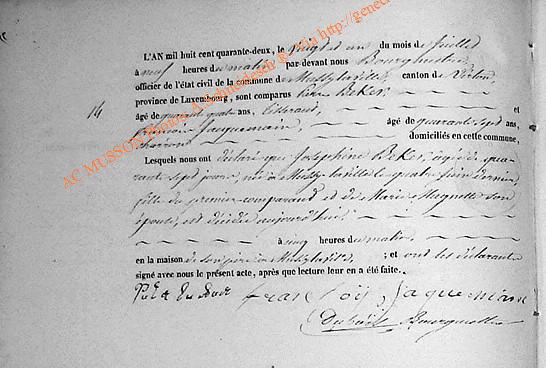 L'AN mil huit cent quarante-deux, le vingt et un du mois de juillet
à neuf heures du matin par-devant nous Bourgmestre,
officier de l'état civil de la commune de Mussy-la-ville, canton de Virton,
province de Luxembourg, sont comparus Pierre Beker,
âgé de quarante quatre ans, Tisserand, et
14
François Jacquemain, âgé de quarante sept ans,
charron domiciliés en cette commune,
Lesquels nous ont déclaré que Josephine Beker, agée de qua-
rante sept jours, née à Mussy-la-ville le quatre juin dernier,
fille du premier comparant et de Marie Magnette son
épouse, est décédée aujourd'hui
à cinq heures du matin,
en la maison de son père à Mussy-la-ville, ; et ont les déclarants
signé avec nous le présent acte, après que lecture leur en a été faite.
françois jaquemain
Bourgmestre
AC MUSSON Photos A. Schneidesch @ via http://genec